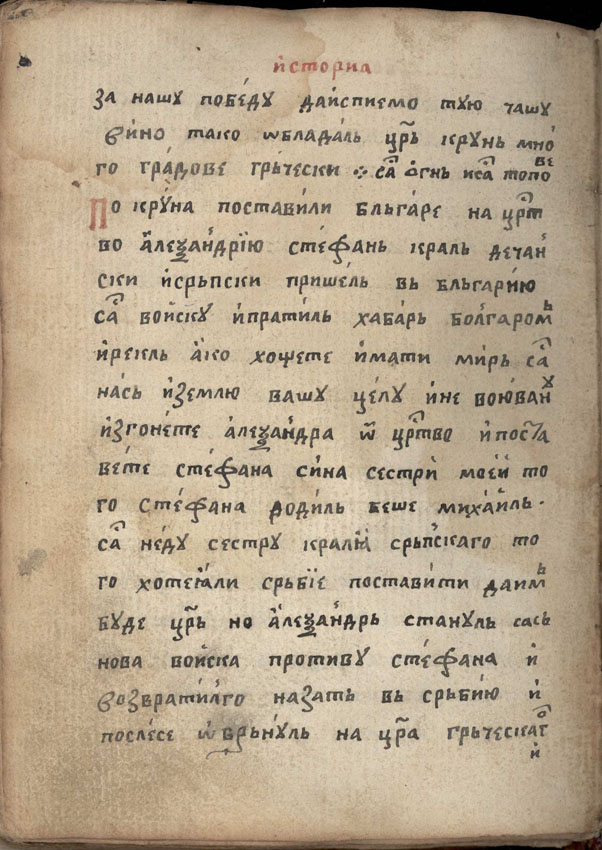 істориа
за нашу побѣду даиспиемо тую чашу
вино тако ѡбладаль цр҃ь крунь мно
го градове гръчески ⁘ са огнь иса топо
ве
По круна поставили бльгаре на цр҃т
во алеѯандрїю стефань краль дечан
ски исрьпски пришель вь бльгарию
са войску ипратиль хабарь болгаромь
ирекль ако хощете имати мирь са
нась иземлю вашу целу ине воювану
изгонете алеѯандра ѿ цр҃тво ипоста
вете стефана сина сестри моеи то
го стефана родиль беше михаиль·
са неду сестру кралıа срьпскаго то
го хотеıали србїе поставити даимь
буде цр҃ь но алеѯандрь стануль сась
нова войска противу стефана и
возвратилго назать вь срьбию и
послесе ѡбрьнуль на цр҃а гръческаго
и